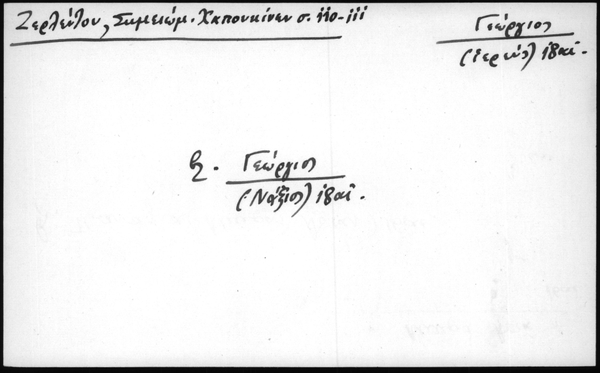 Ζερλέντου, Σημειώμ. Χαπουκίνων σ. 110-111
Γεώργιος
(ἱερεύς) ιβαῖ.
β. Γεώργιος
(Νάξιος) ιβαῖ.